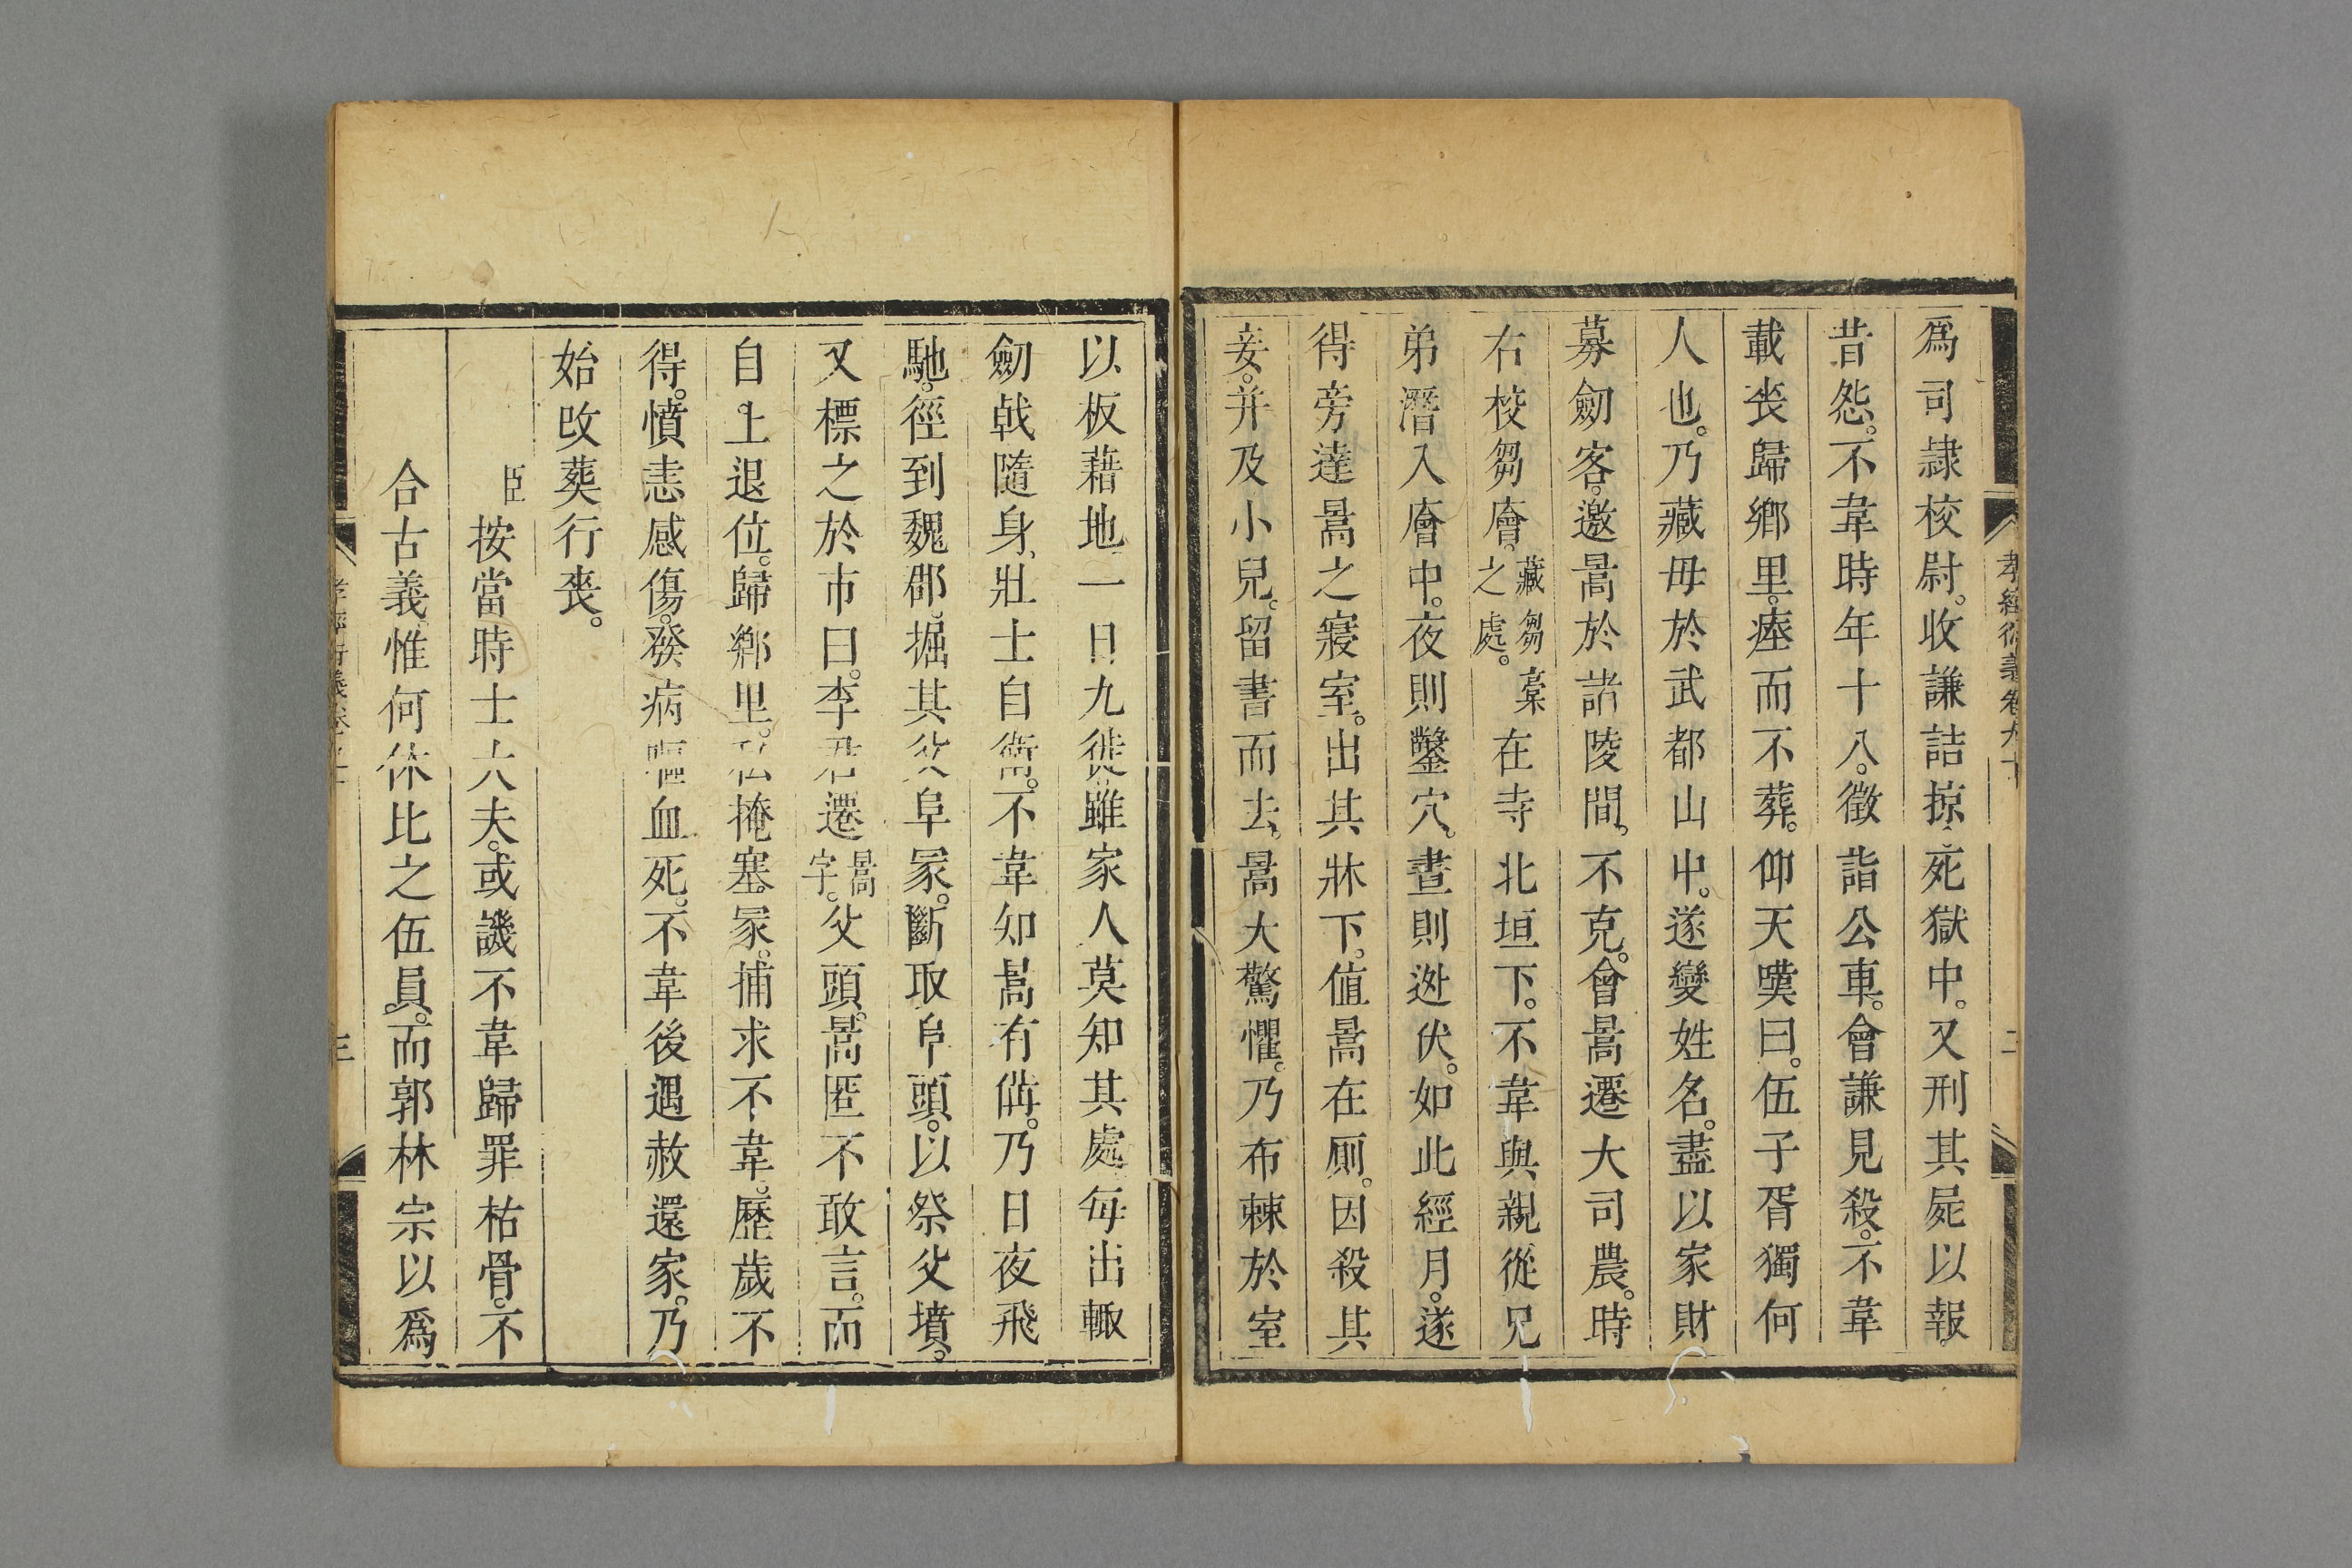 爲司隷校尉。收謙詰掠。死獄中。又刑其屍以報
昔怨。不韋時年十八。徵詣公車。會謙見殺。不韋
載喪歸鄉里。瘞而不葬。仰天嘆曰。伍子胥獨何
人也。乃藏母於武都山中。遂變姓名。盡以家財
募劒客。邀暠於諸陵間。不克。會暠遷大司農。時
右校芻廥。藏芻稾之處。在寺北垣下。不韋與親從兄
弟潛入廥中。夜則鑿穴。晝則逃伏。如此經月。遂
得旁達暠之寢室。出其牀下。值暠在厠。因殺其
妾。并及小兒。留書而去。暠大驚懼。乃布棘於室
孝經衍義卷九十
二
以板藉地一日九徙。雖家人莫知其處。每出輙
劒戟隨身。壯士自衞。不韋知暠有備。乃日夜飛
馳。徑到魏郡。掘其父阜冢。斷取阜頭。以祭父墳。
又標之於市曰。李君遷暠字。父頭。暠匿不敢言。而
自上退位。歸鄉里。私掩塞冢。捕求不韋。歷歲不
得。憤恚感傷。發病嘔血死。不韋後遇赦還家。乃
始改葬行喪。
臣按當時士大夫。或譏不韋歸罪枯骨。不
合古義。惟何休比之伍員。而郭林宗以爲
三